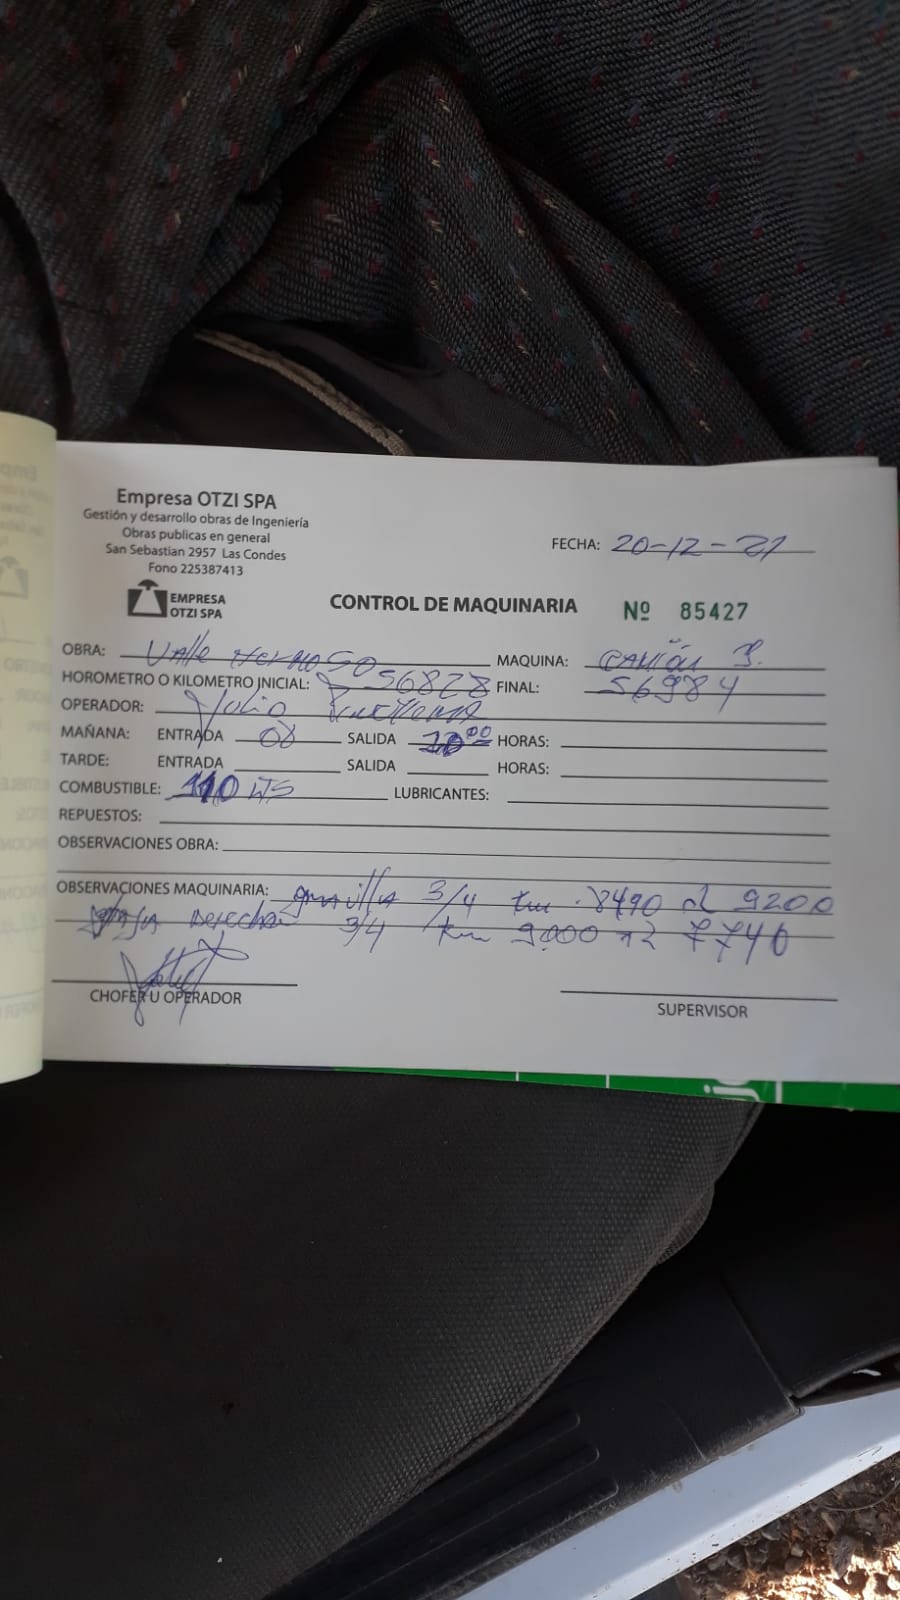 Empresa OTZI SPA
Gestión y desarrollo obras de Ingeniería
Obras publicas en general
San Sebastian 2957 Las Condes
Fono 225387413
EMPRESA
OTZI SPA
FECHA: 20-12-21
CONTROL DE MAQUINARIA Nº 85427
OBRA: Valle Hermoso MAQUINA: Camión
HOROMETRO O KILOMETRO INICIAL: 56828 FINAL: 56984
OPERADOR: Julio
MAÑANA: ENTRADA 08 SALIDA HORAS:
TARDE: ENTRADA SALIDA HORAS:
COMBUSTIBLE: 110 LTS LUBRICANTES:
REPUESTOS:
OBSERVACIONES OBRA:
OBSERVACIONES MAQUINARIA: gravilla 3/4 km 8490 al 9200
Derecha 3/4 km 9.000 al 7740
CHOFER U OPERADOR
SUPERVISOR